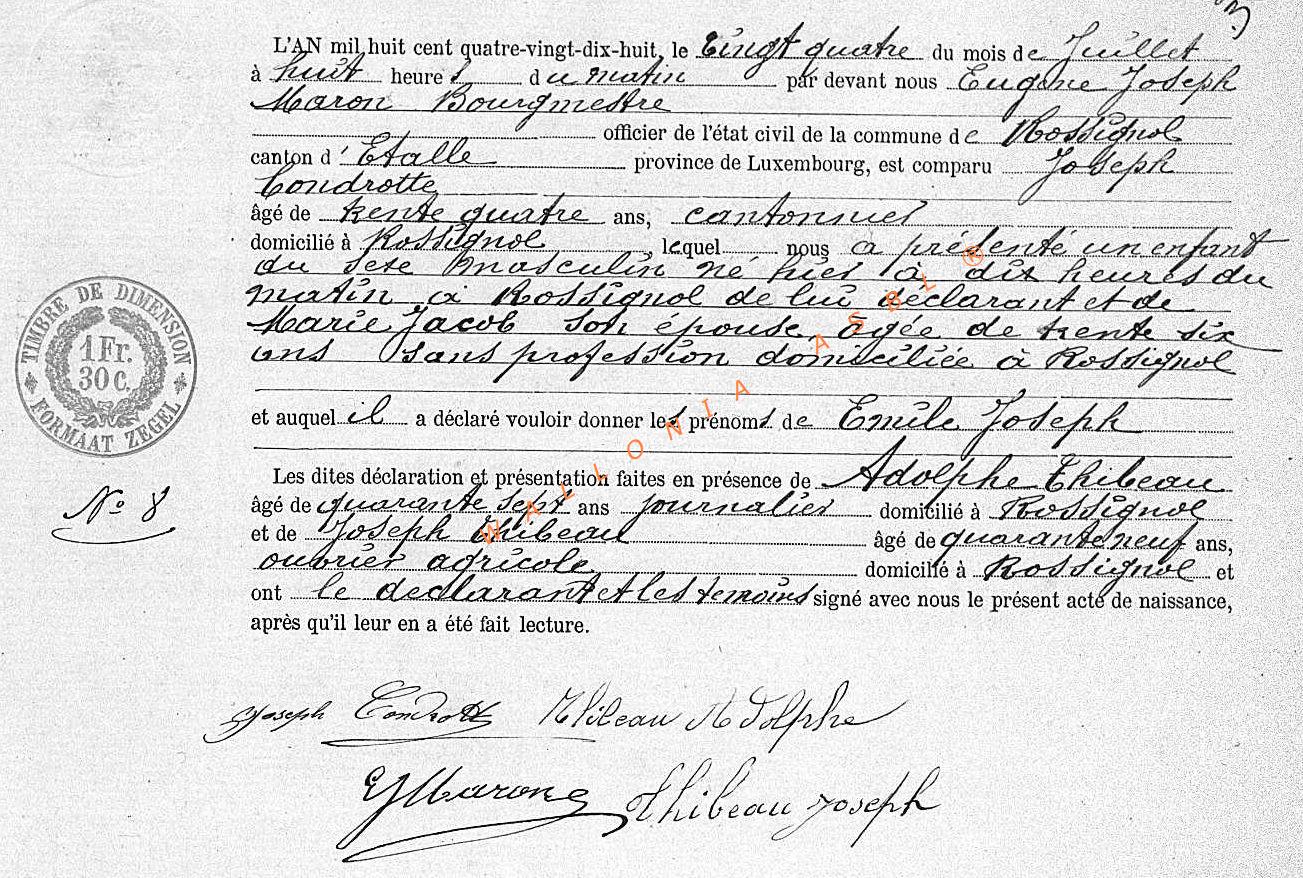 3
L'AN mil huit cent quatre-vingt-dix-huit, le vingt quatre du mois de Juillet
à huit heures du matin par devant nous Eugène Joseph
Maron Bourgmestre
officier de l'état civil de la commune de Rossignol
canton d'Etalle province de Luxembourg, est comparu Joseph
Condrotte
âgé de trente quatre ans, cantonnier
domicilié à Rossignol, lequel nous a présenté un enfant
du sexe masculin né hier à dix heures du
matin, à Rossignol de lui déclarant et de
Marie Jacob son épouse âgée de trente six
ans sans profession domiciliée à Rossignol
et auquel il a déclaré vouloir donner les prénoms de Emile Joseph
Les dites déclaration et présentation faites en présence de Adolphe Thibeau
âgé de quarante sept ans journalier domicilié à Rossignol
et de Joseph Thibeau âgé de quarante neuf ans,
ouvrier agricole domicilié à Rossignol et
ont le déclarant et les témoins signé avec nous le présent acte de naissance,
après qu'il leur en a été fait lecture.
TIMBRE DE DIMENSION
1 Fr.
30 C.
FORMAAT ZEGEL
No 8
WALLONIA ASBL ®
Joseph Condrotte Thibeau Adolphe
EJMaron Thibeau Joseph